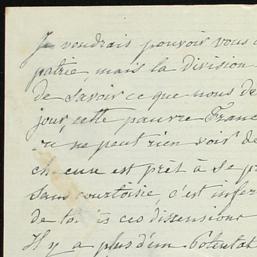 Je voudrais pouvoir vous
patrie, mais la division
de savoir ce que nous de
jour, cette pauvre Franc
ne peut rien voir de
chacune est prêt à se
sans courtoisie, c'est infer
de ces dissensions
Il y a plus d'un Potentat